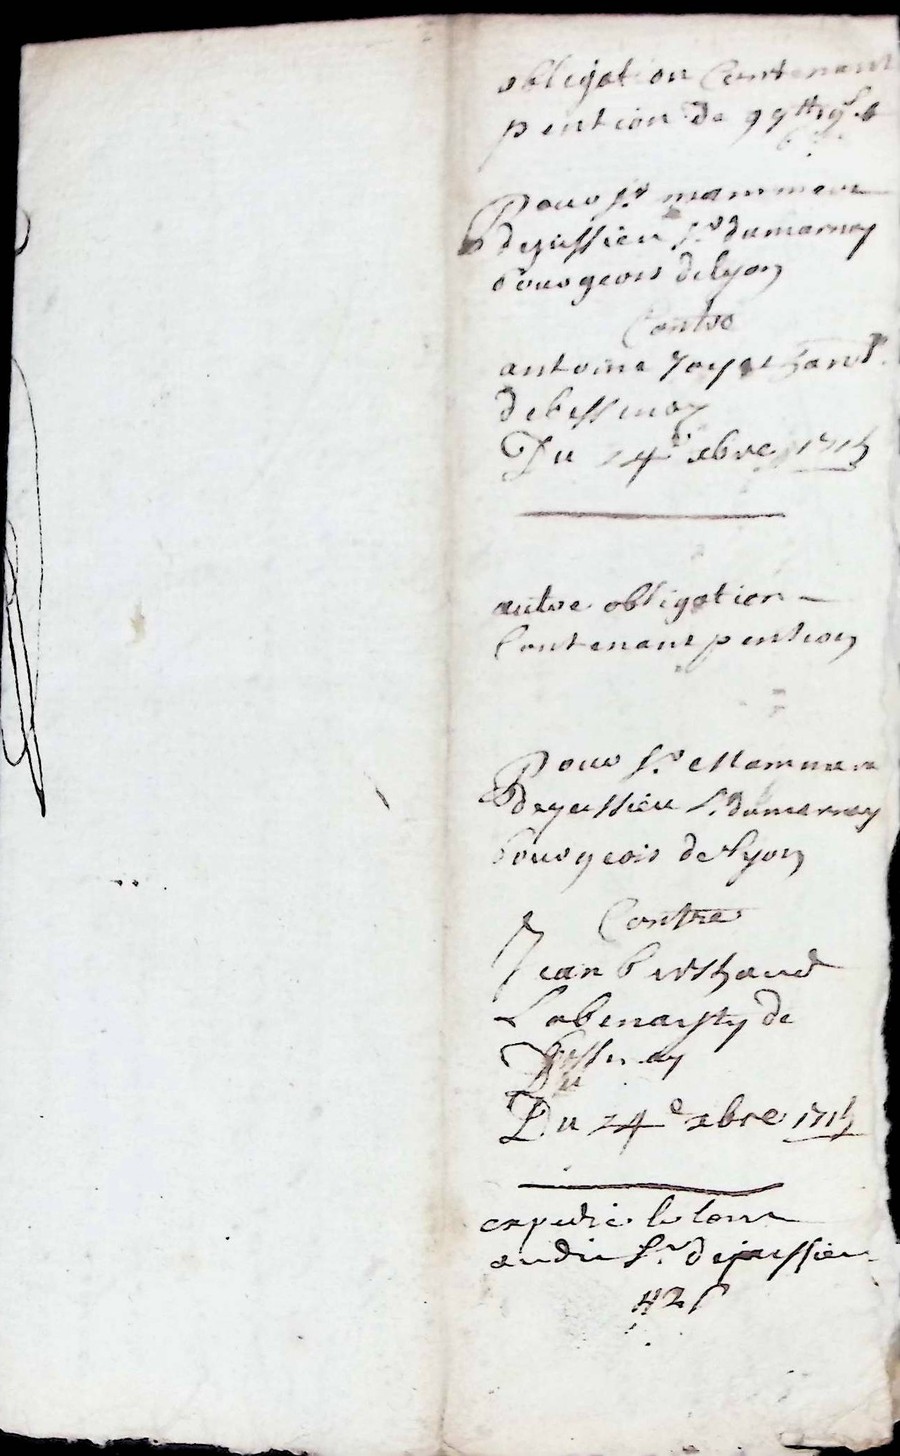 obligation Contenant
pention de 99tt 19s
Pour Sr mammere
dejussieu Sr dumarnay
bourgeois de lyon
Contre
antoine
de bessenay
Du 24e xbre 1715
autre obligation
Contenant pention
Pour Sr Mammere
dejussieu Sr dumarnay
bourgeois de lyon
Contre
Jean berthaud
de
Bessenay
Du
Du 24e xbre 1715
expedié le tout
audit Sr dejussieu